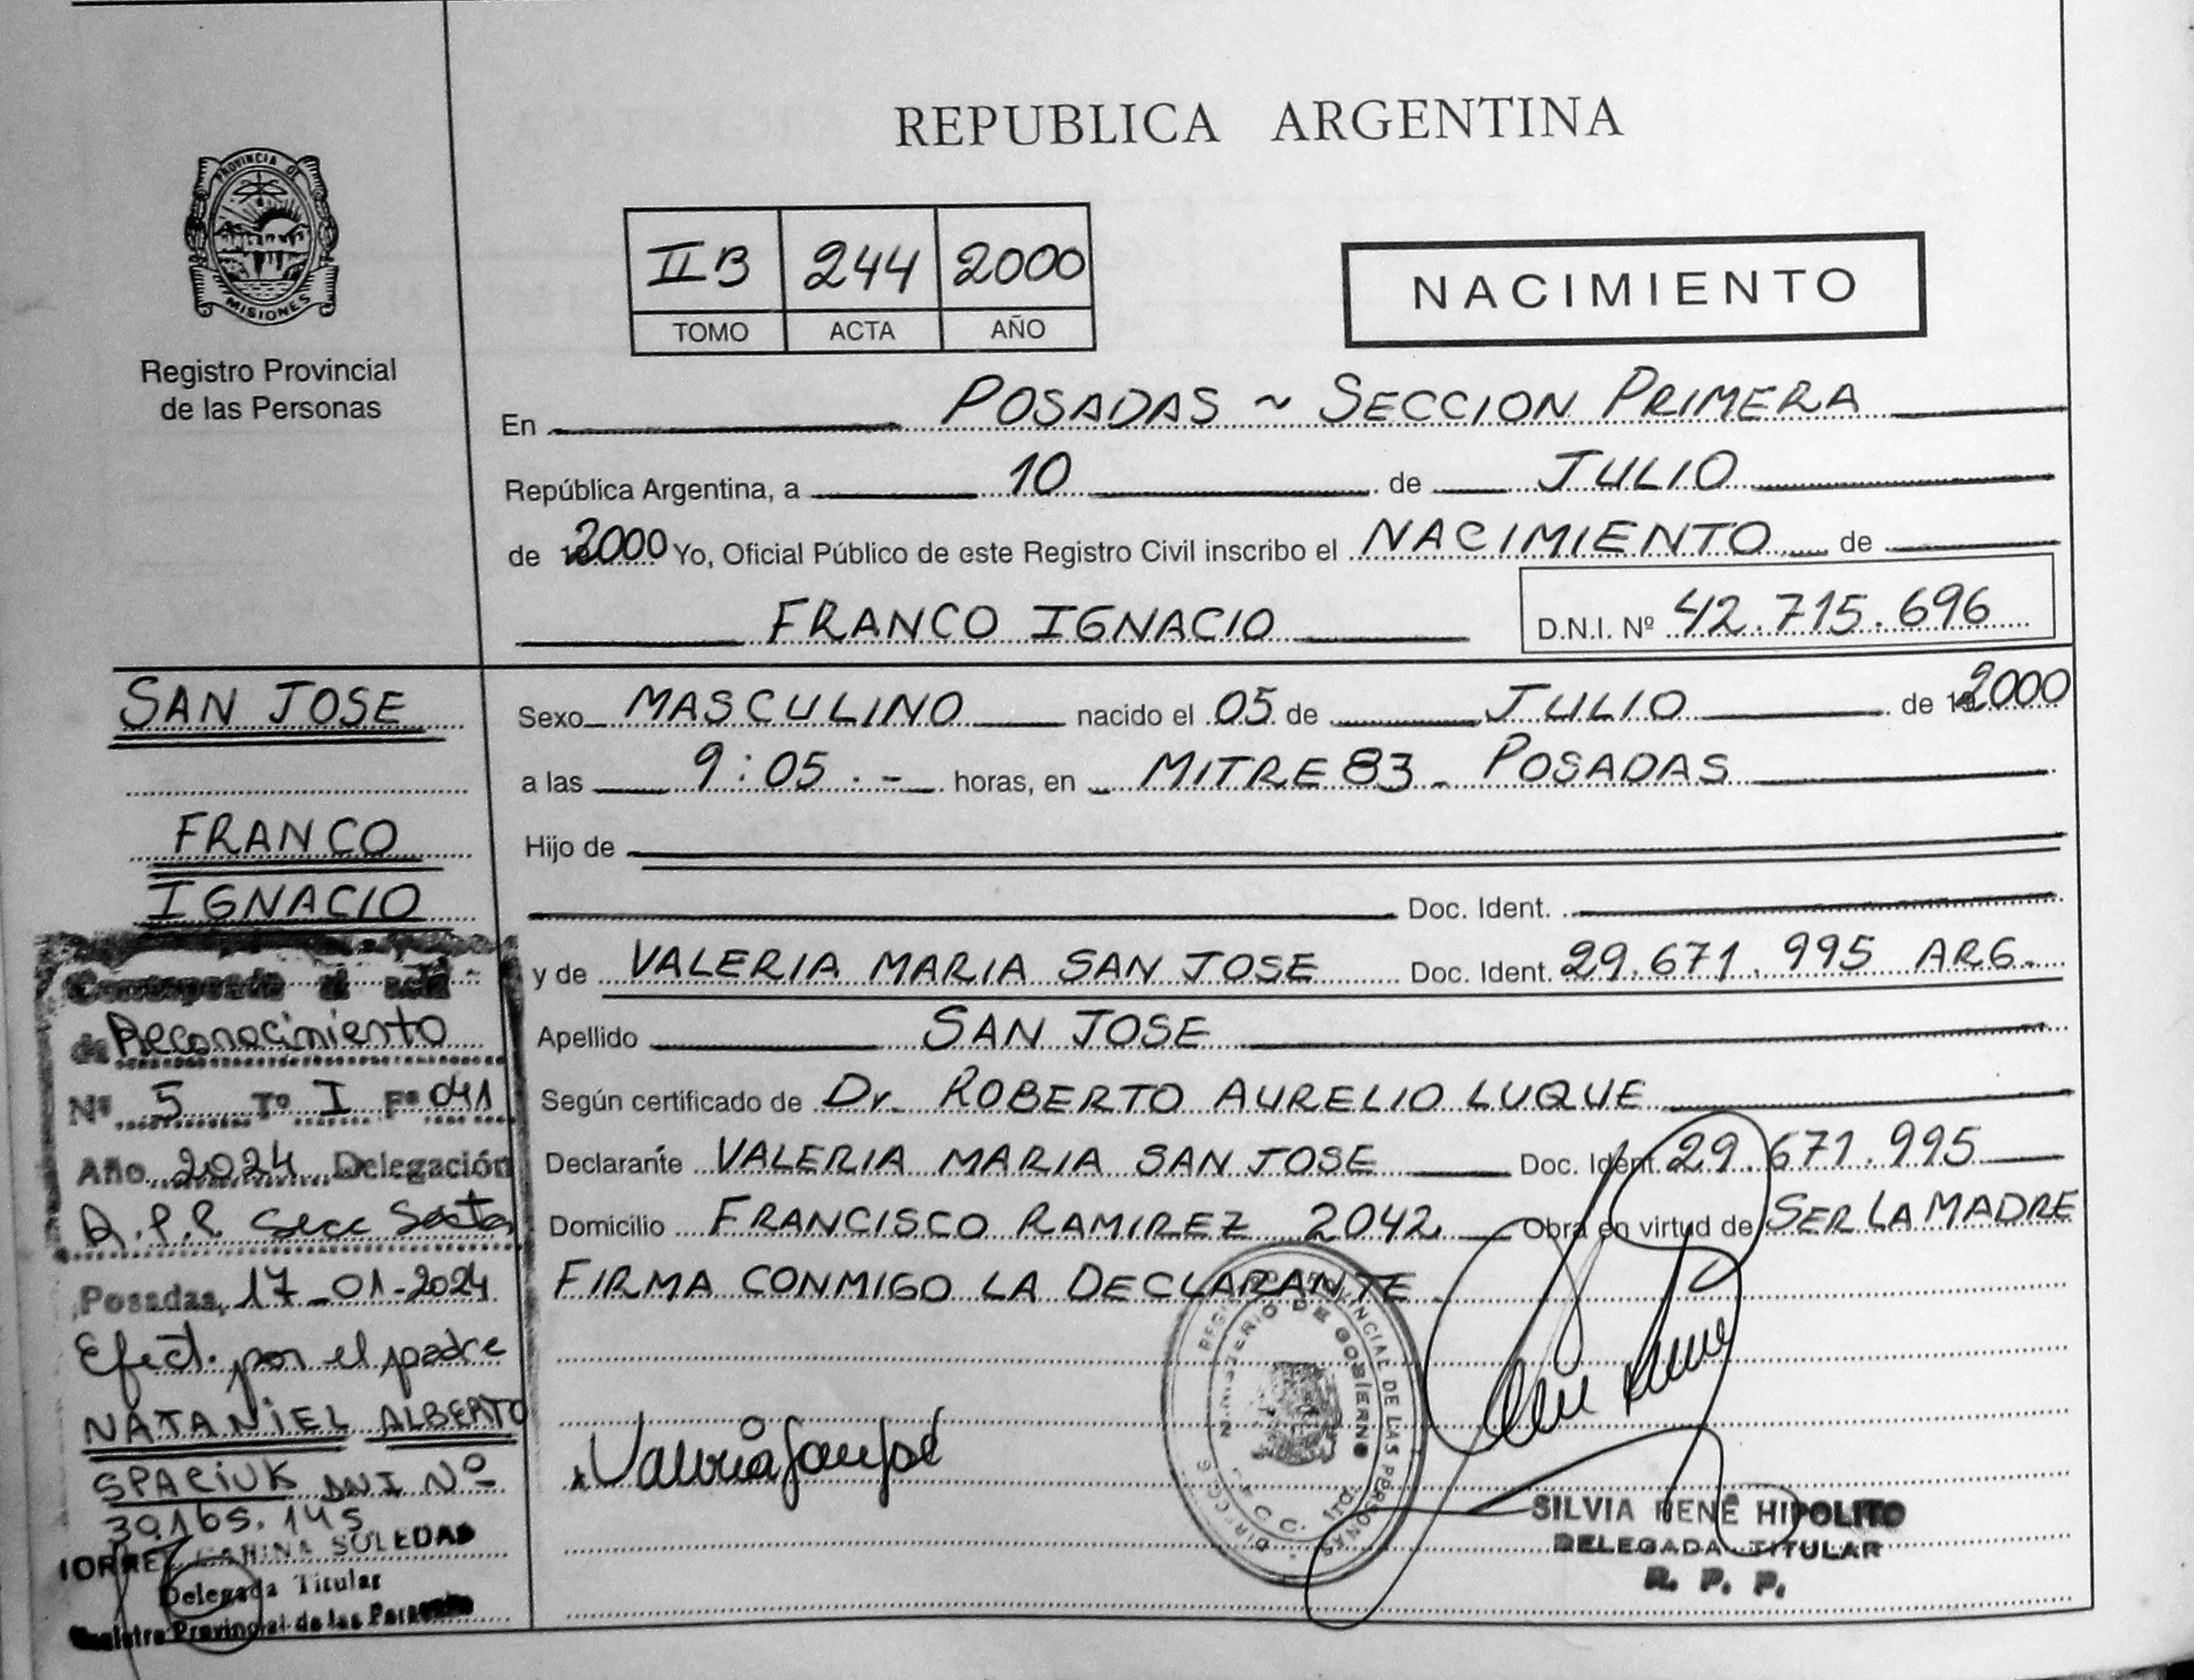 REPUBLICA ARGENTINA
PROVINCIA DE
MISIONES
Registro Provincial
de las Personas
II B 244 2000
TOMO ACTA AÑO
NACIMIENTO
En POSADAS ~ SECCION PRIMERA
República Argentina, a 10 de JULIO
de 2000 Yo, Oficial Público de este Registro Civil inscribo el NACIMIENTO de
FRANCO IGNACIO D.N.I. Nº 42.715.696
Sexo MASCULINO nacido el 05 de JULIO de 2000
a las 9:05.- horas, en MITRE 83 - POSADAS
Hijo de
Doc. Ident.
y de VALERIA MARIA SAN JOSE Doc. Ident. 29.671.995 ARG.
Apellido SAN JOSE
Según certificado de Dr. ROBERTO AURELIO LUQUE
Declarante VALERIA MARIA SAN JOSE Doc. Ident. 29.671.995
Domicilio FRANCISCO RAMIREZ 2042 Obra en virtud de SER LA MADRE
FIRMA CONMIGO LA DECLARANTE
MINISTERIO DE GOBIERNO
PROVINCIAL DE LAS PERSONAS
SILVIA RENÉ HIPOLITO
DELEGADA TITULAR
R. P. P.
SAN JOSE
FRANCO
IGNACIO
Corresponde al acta
de Reconocimiento
Nº 5 Tº I Fº 041
Año 2024 Delegación
R.P.P. Secc Sexta
Posadas, 17-01-2024
Efect. por el padre
NATANIEL ALBERTO
SPACIUK DNI Nº
30.165.145
SOLEDAD
Delegada Titular
Registro Provincial de las Personas